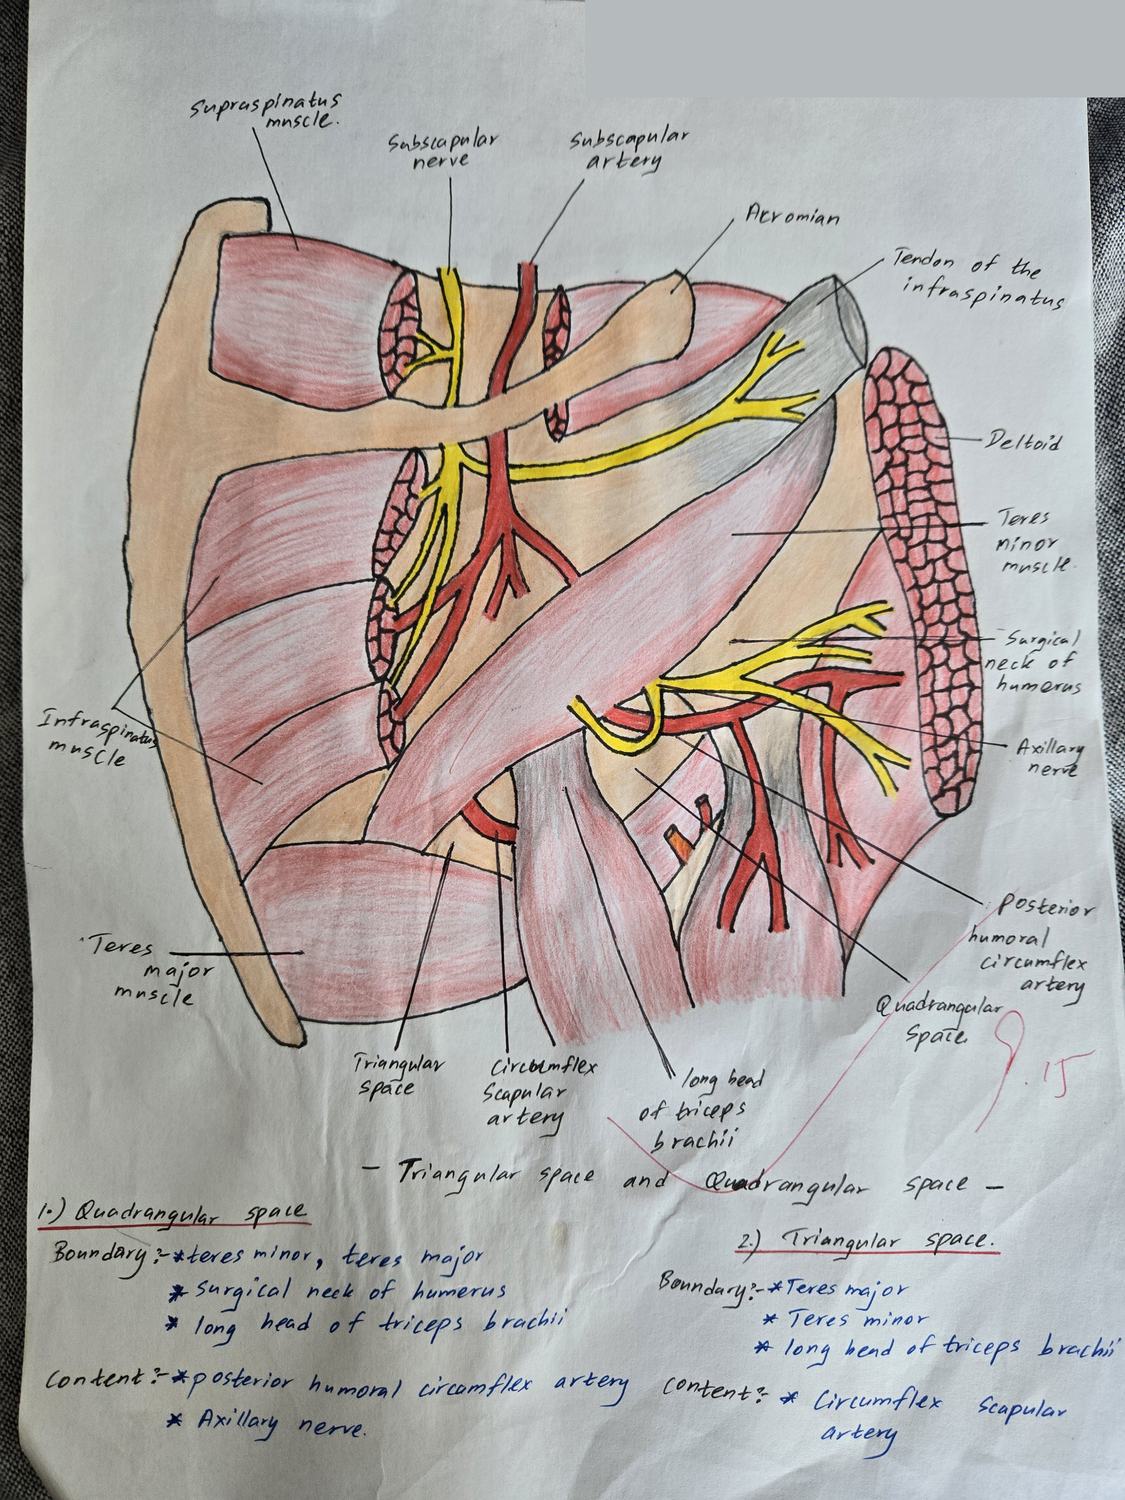 Supraspinatus
muscle.
Subscapular
nerve
Subscapular
artery
Acromian
Tendon of the
infraspinatus
Deltoid
Teres
minor
muscle.
Surgical
neck of
humerus
Infraspinatus
muscle
Axillary
nerve
Posterior
humoral
circumflex
artery
Teres
major
muscle
Quadrangular
Space.
Triangular
space
Circumflex
Scapular
artery
long head
of triceps
brachii
9.15
- Triangular space and Quadrangular space -
1.) Quadrangular space
Boundary:- * teres minor, teres major
* Surgical neck of humerus
* long head of triceps brachii
Content:- * posterior humoral circumflex artery
* Axillary nerve.
2.) Triangular space.
Boundary:- * Teres major
* Teres minor
* long head of triceps brachii
Content:- * Circumflex Scapular
artery